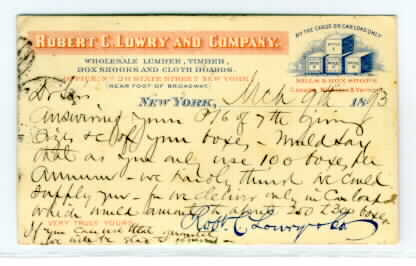 ROBERT C. LOWRY AND COMPANY.
BY THE CARGO OR CAR LOAD ONLY
WHOLESALE LUMBER, TIMBER,
BOX SHOOKS AND CLOTH BOARDS.
OFFICE, No 28 STATE STREET NEW YORK
NEAR FOOT OF BROADWAY.
MILLS & BOX SHOPS
CANADA, & VERMONT
NEW YORK, Mch 9th 1893
Dr Sir
Answering yours of 7th giving
sizes &c of your boxes - would say
that as you only use 100 boxes per
annum - we hardly think we could
supply you - for we deliver only in Car loads
which would amount to about 250 to 300 boxes
If you can use that
we will be glad to
VERY TRULY YOURS,
Robt. C. Lowry & Co